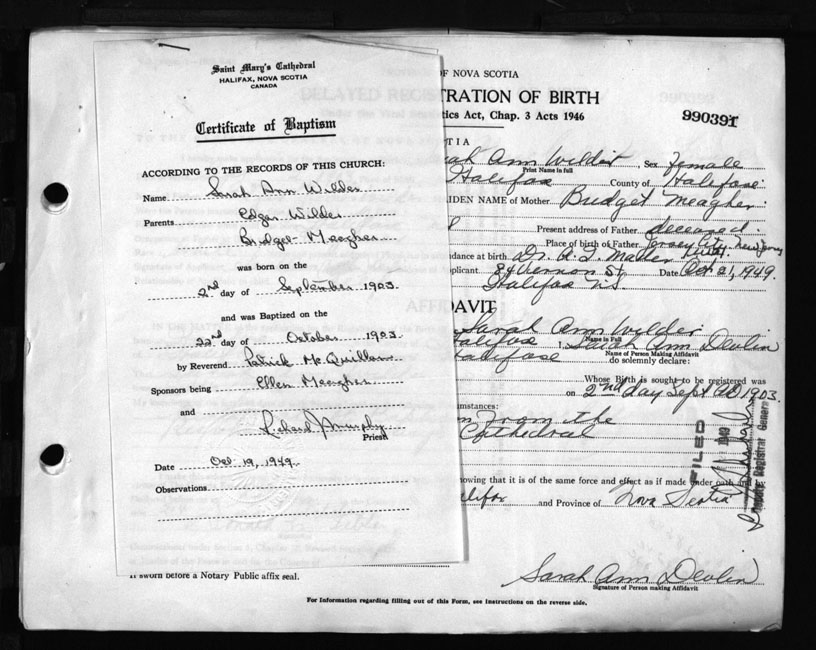 Saint Mary's Cathedral
HALIFAX, NOVA SCOTIA
CANADA
Certificate of Baptism
ACCORDING TO THE RECORDS OF THIS CHURCH:
Name Sarah Ann Wilder
Parents Edgar Wilder
Bridget Meagher
was born on the
2nd day of September 1903.
and was Baptized on the
22nd day of October 1903.
by Reverend Patrick McQuillan
Sponsors being Ellen Meagher
and
Richard J Murphy
Priest
Date Oct 19, 1949.
Observations
OF NOVA SCOTIA
TRATION OF BIRTH
tics Act, Chap. 3 Acts 1946
990391
TIA
rah Ann Wilder, Sex female
Print Name in full
Halifax County of Halifax
IDEN NAME of Mother Bridget Meagher
Present address of Father deceased.
Place of birth of Father Jersey City, New Jersey
ndance at birth Dr. A. I. Mader
pplicant 84 Vernon St, Date Oct 21, 1949.
Halifax N.S.
DAVIT
Sarah Ann Wilder
Name in Full
alifax I, Sarah Ann Devlin
Name of Person Making Affidavit
alifax do solemnly declare:
Whose Birth is sought to be registered was
on 2nd day Sept AD 1903.
cumstances:
from the
Cathedral
FILED
1949
Deputy Registrar General
nowing that it is of the same force and effect as if made under oath and by
alifax and Province of Nova Scotia
If sworn before a Notary Public affix seal.
Sarah Ann Devlin
Signature of Person making Affidavit
For Information regarding filling out of this Form, see Instructions on the reverse side.